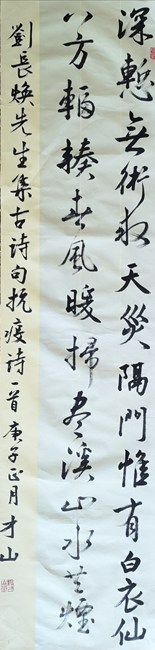 深慙無術救天災隔門惟有白衣仙
八方輻輳春風暖掃盡溪山水茫煙
劉長煥先生集古詩句抗疫詩一首庚子正月才山